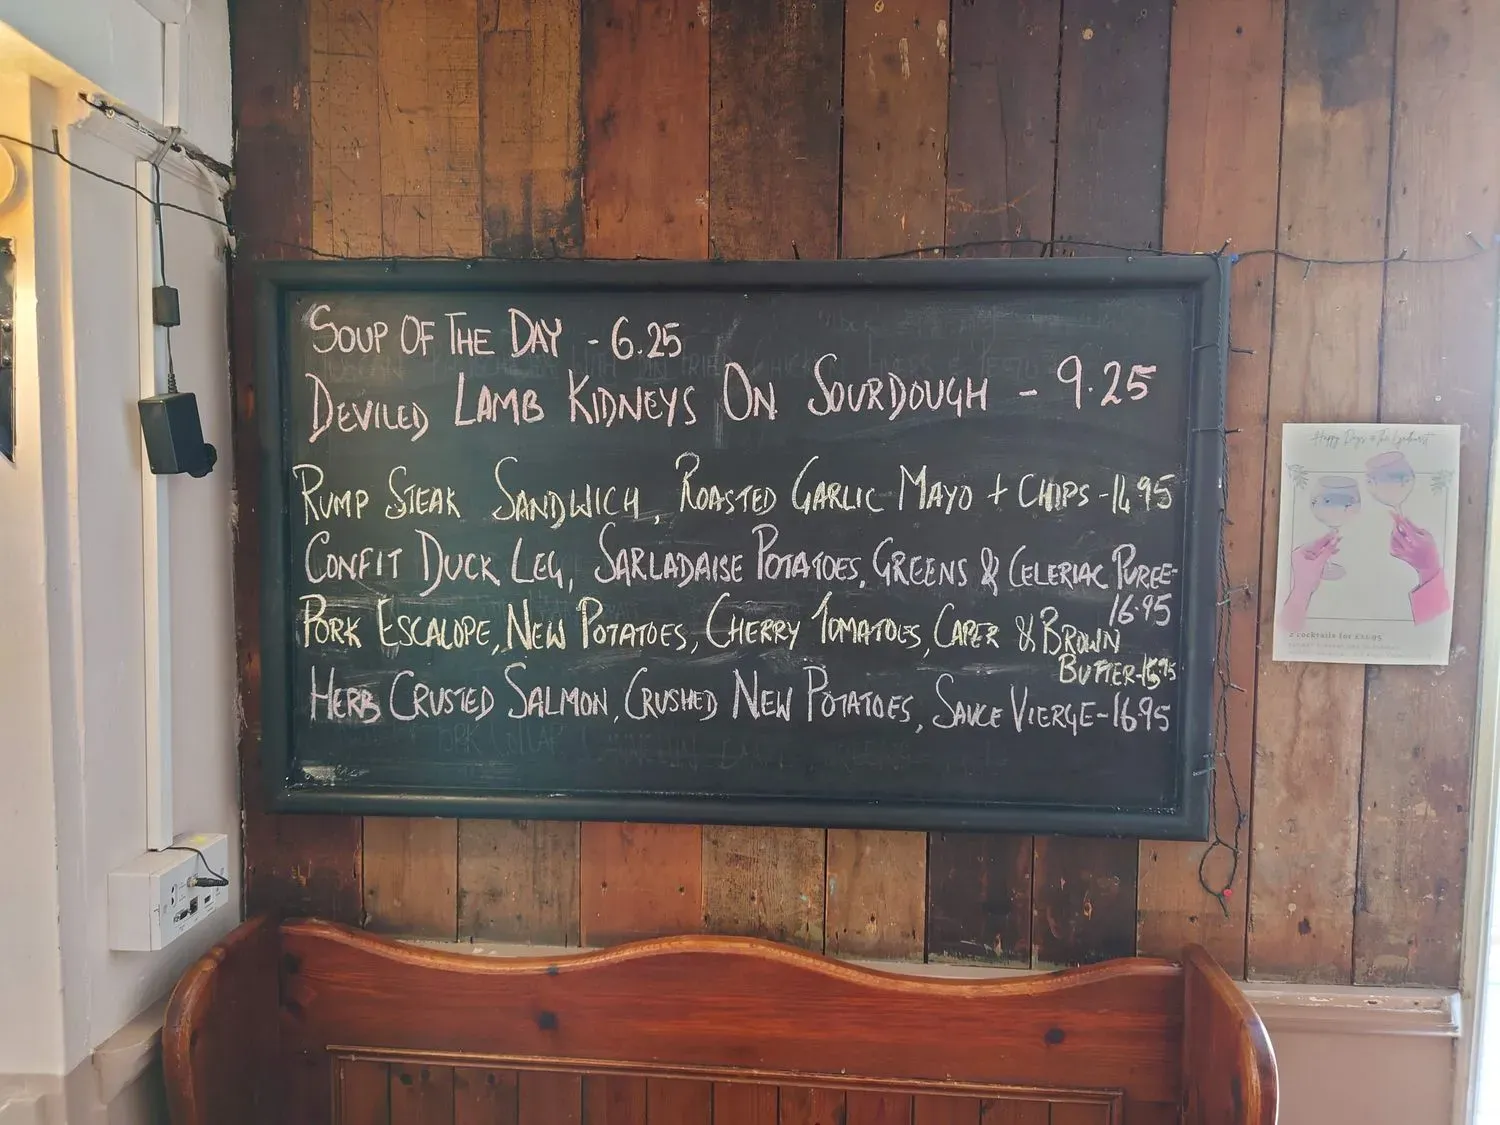 SOUP OF THE DAY - 6.25
DEVILED LAMB KIDNEYS ON SOURDOUGH - 9.25
RUMP STEAK SANDWICH, ROASTED GARLIC MAYO + CHIPS - 14.95
CONFIT DUCK LEG, SARLADAISE POTATOES, GREENS & CELERIAC PUREE-
16.95
PORK ESCALOPE, NEW POTATOES, CHERRY TOMATOES, CAPER & BROWN
BUTTER-15.95
HERB CRUSTED SALMON, CRUSHED NEW POTATOES, SAUCE VIERGE-16.95
Happy Days @ The Lyndhurst
2 cocktails for